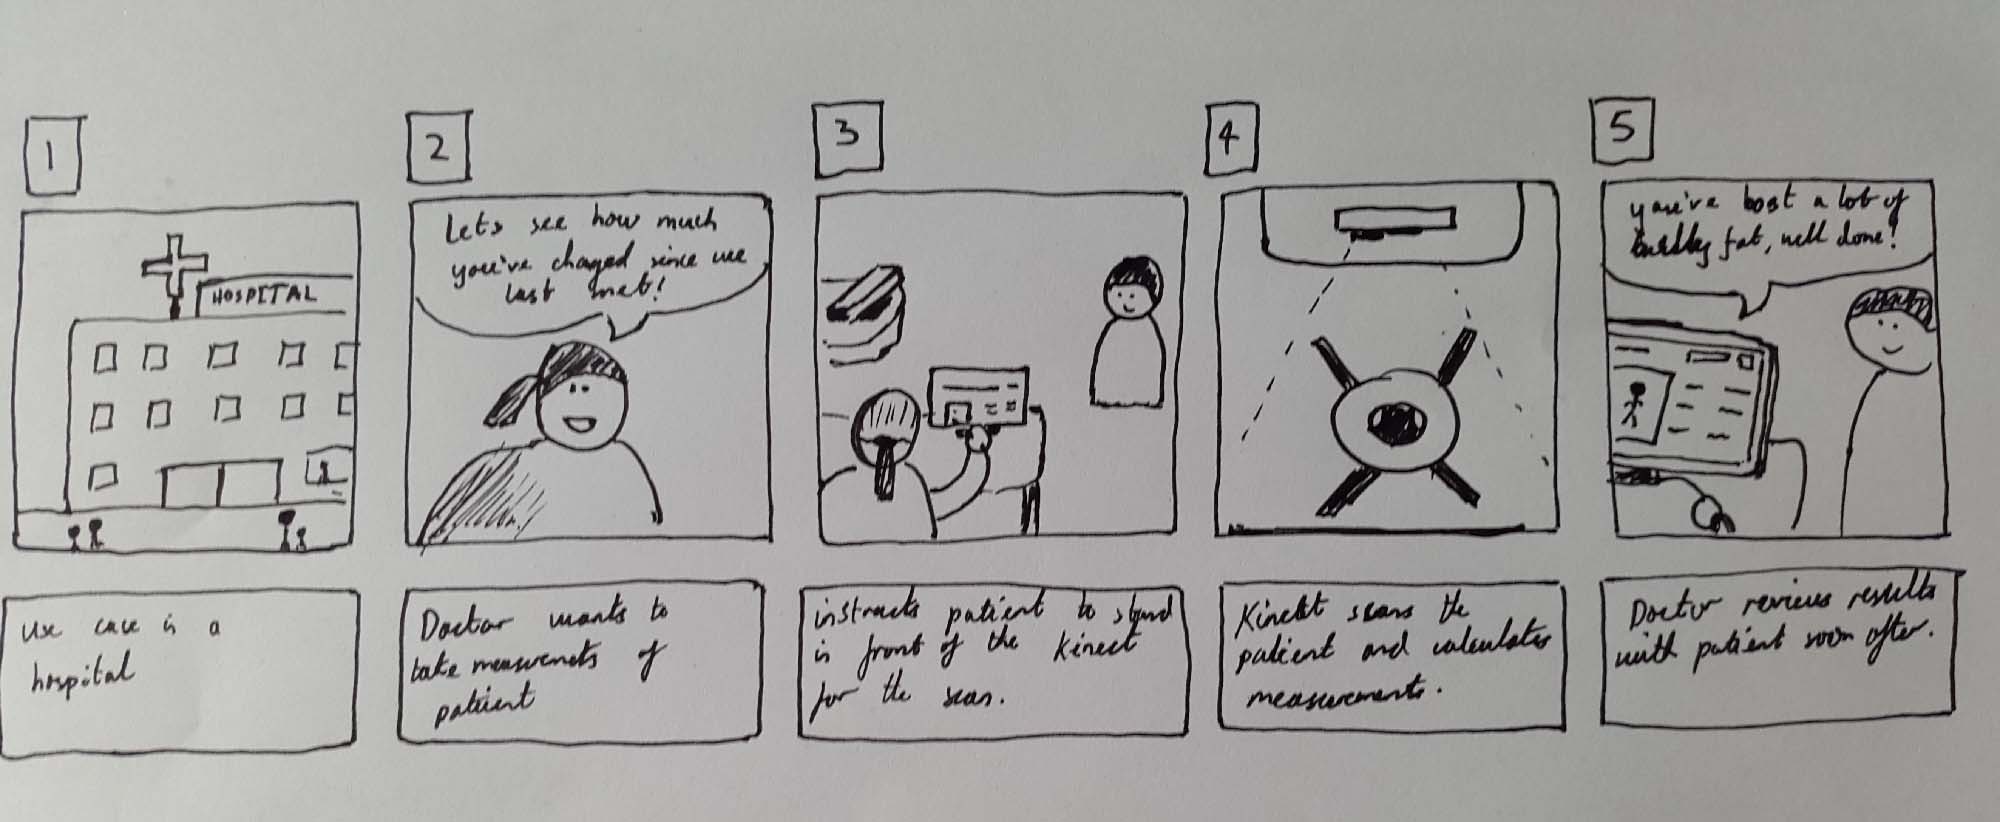 1
HOSPITAL
use case is a
hospital
2
Lets see how much
you've chaged since we
last met!
Doctor wants to
take measuremets of
patient
3
instructs patient to stand
in front of the Kinect
for the scan.
4
Kinect scans the
patient and calculates
measurements.
5
you've lost a lot of
fat, well done!
Doctor reviews results
with patient soon after.